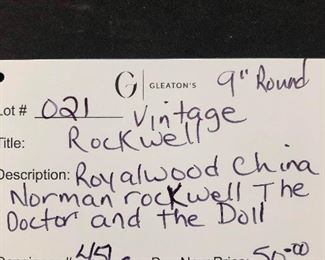 G | GLEATON'S 9" Round
Lot # 021 Vintage
Title: Rockwell
Description: Royalwood China
Norman rockwell The
Doctor and the Doll
50.00